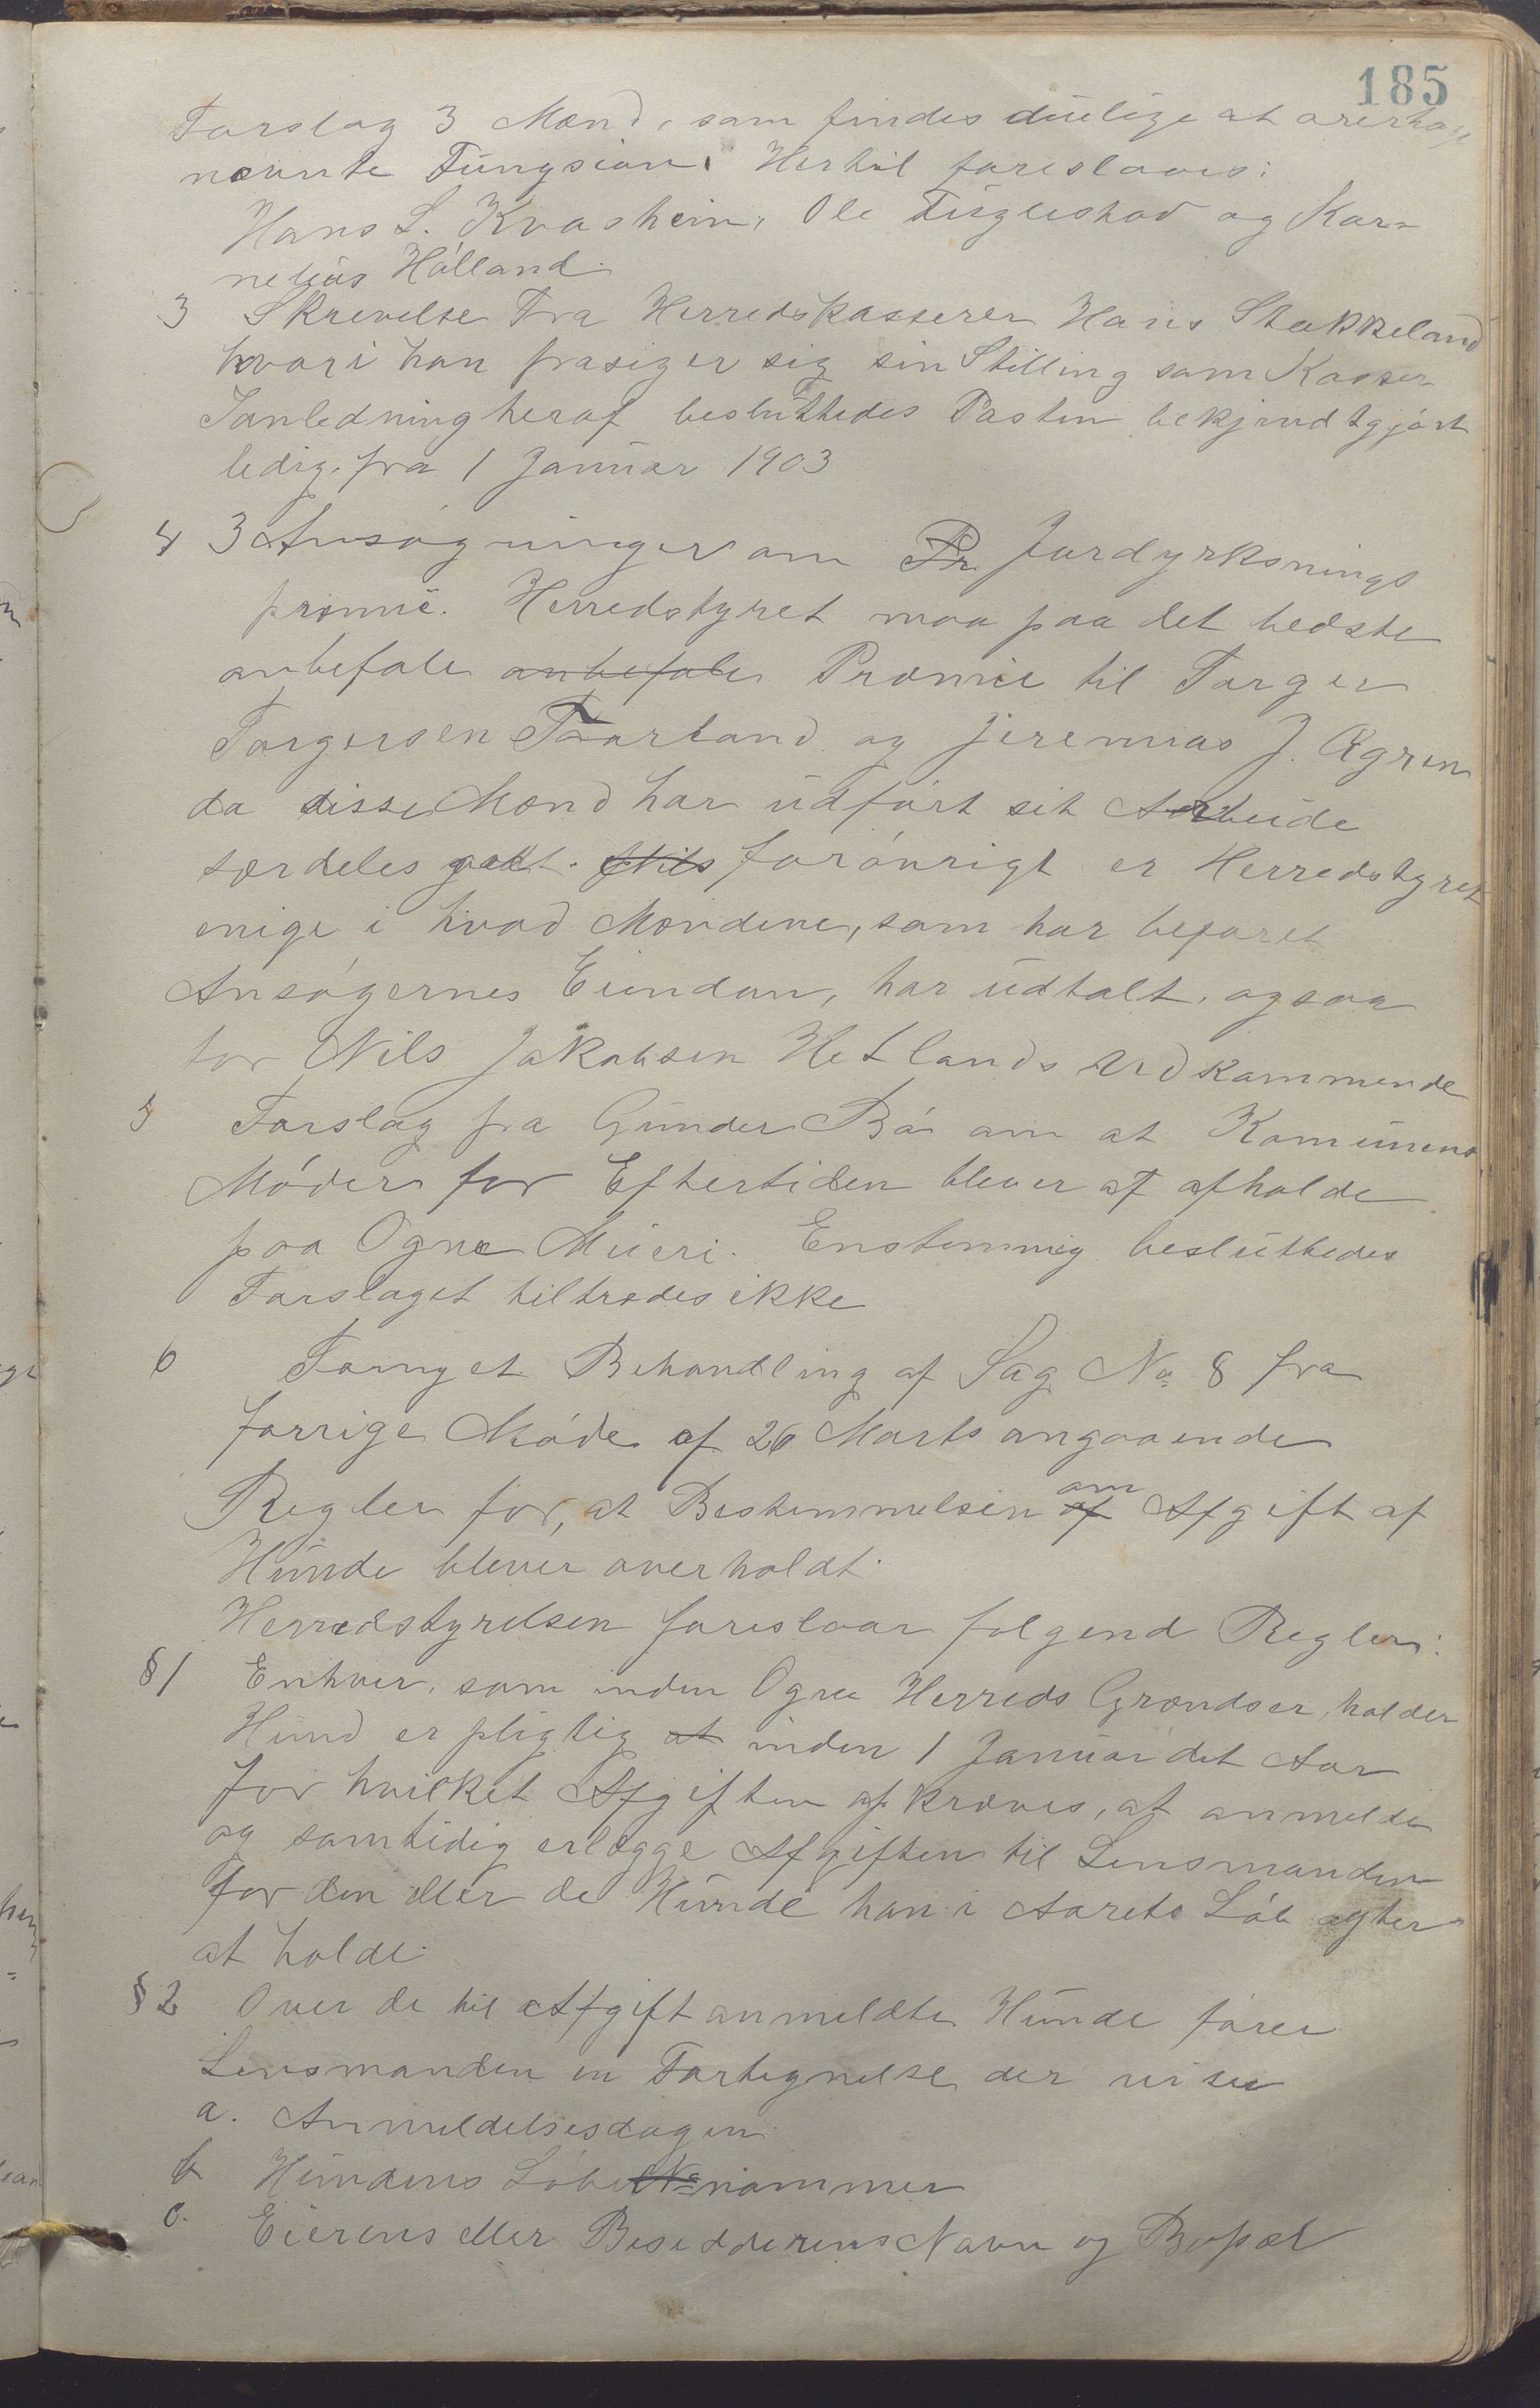 185
Forslag 3 Mænd, som findes duelige at overtage
nævnte Fungsion. Hertil foreslaaes:
Hans S. Kvashein, Ole Fuglestad og Kor=
nelius Hålland.
3 Skrevelse fra Herredskasserer Hans Stokkeland
hvori han frasiger sig sin Stilling som Kasser
Ianledning heraf besluttedes Posten bekjendtgjört
ledig fra 1 Januar 1903
4 3 Ansögninger om Pr. Jordyrksnings
præmie. Herredstyret maa paa det bedste
anbefale anbefale Præmie til Torger
Torgersen Aarland og Jeremias J. Ægren
da disse Mænd har udfört sit Arbeide
særdeles godt. Nils foröuvrigt er Herredstyret
enige i hvad Mændene, som har befaret
Ansögernes Eiendom, har udtalt, ogsaa
for Nils Jakobsen Hetlands Vedkommende
5 Forslag fra Gunder Bö om at Komunens
Möder for Eftertiden bliver at afholde
paa Ogne Mieri. Enstemmig besluttedes
Forslaget tiltrædes ikke
6 Fornyet Behandling af Sag No 8 fra
forrige Möde af 26 Marts angaaende
Regler for, at Bestemmelsen af om Afgift af
Hunde bliver overholdt.
Herredstyrelsen foreslaar folgend Regler:
§1 Enhver, som inden Ogne Herreds Grændser, holder
Hund er pligtig at inden 1 Januar det Aar
for hvilket Afgiften afkræves, at anmelde
og samtidig erlægge Afgiften til Lensmanden
for den eller de Hunde han i Aarets Löb agter
at holde.
§2 Over de til Afgift anmeldte Hunde förer
Lensmanden en Fortegnelse der viser
a. Anmeldelsesdagen
b Hundens Löbe No nommer
c. Eierens eller Besidderens Navn og Bopæl